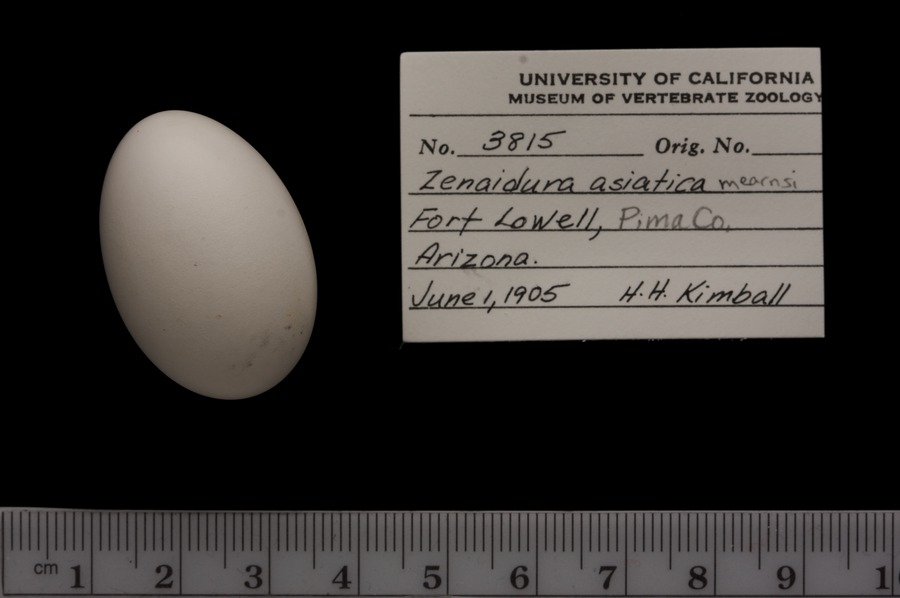 UNIVERSITY OF CALIFORNIA
MUSEUM OF VERTEBRATE ZOOLOGY
No. 3815 Orig. No.
Zenaidura asiatica mearnsi
Fort Lowell, Pima Co.
Arizona.
June 1, 1905 H.H. Kimball
cm 1 2 3 4 5 6 7 8 9 1